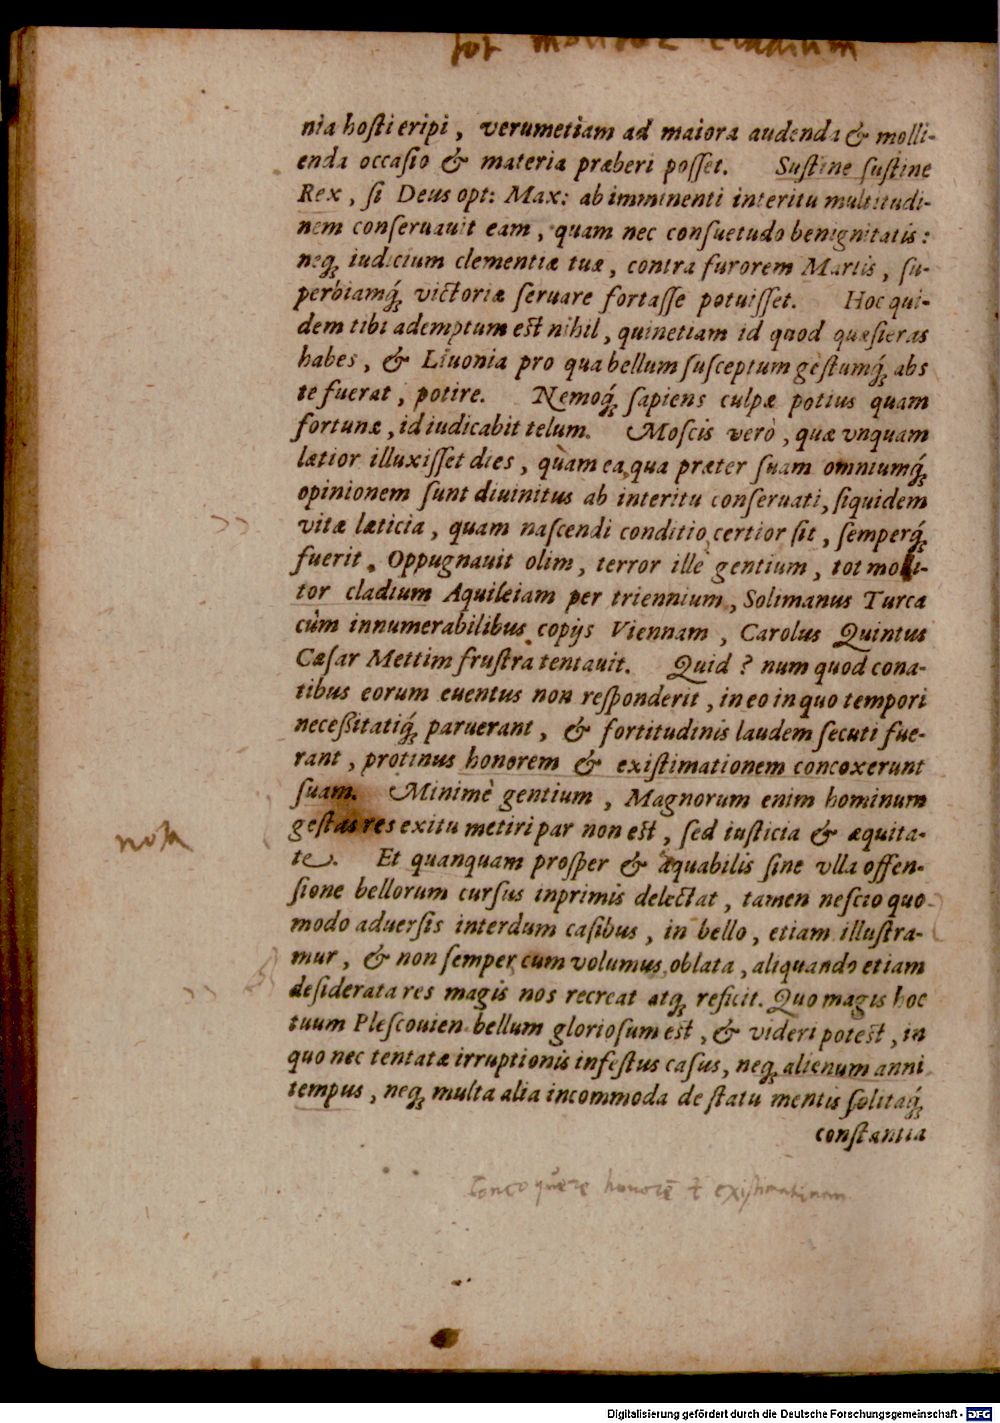 tot molitor cladium
nia hosti eripi, verumetiam ad maiora audenda & molli-
enda occasio & materia præberi posset. Sustine sustine
Rex, si Deus opt: Max: ab imminenti interitu multitudi-
nem conseruauit eam, quam nec consuetudo benignitatis:
neq́; iudicium clementiæ tuæ, contra furorem Martis, su-
perbiamq́; victoriæ seruare fortasse potuisset. Hoc qui-
dem tibi ademptum est nihil, quinetiam id quod quæsieras
habes, & Liuonia pro qua bellum susceptum gestumq́; abs
te fuerat, potire. Nemoq́; sapiens culpæ potius quam
fortunæ, id iudicabit telum. Moscis verò, quæ vnquam
lætior illuxisset dies, quàm ea qua præter suam omniumq́;
opinionem sunt diuinitus ab interitu conseruati, siquidem
vitæ læticia, quam nascendi conditio certior sit, semperq́;
fuerit. Oppugnauit olim, terror ille gentium, tot moli-
tor cladium Aquileiam per triennium, Solimanus Turca
cùm innumerabilibus copijs Viennam, Carolus Quintus
Cæsar Mettim frustra tentauit. Quid? num quod cona-
tibus eorum euentus non responderit, in eo in quo tempori
necessitatiq́; paruerant, & fortitudinis laudem secuti fue-
rant, protinus honorem & existimationem concoxerunt
suam. Minimè gentium, Magnorum enim hominum
gestas res exitu metiri par non est, sed iusticia & æquita-
te. Et quanquam prosper & æquabilis sine vlla offen-
nota
sione bellorum cursus inprimis delectat, tamen nescio quo
modo aduersis interdum casibus, in bello, etiam illustra-
mur, & non semper cum volumus oblata, aliquando etiam
desiderata res magis nos recreat atq; reficit. Quo magis hoc
tuum Plescouien bellum gloriosum est, & videri potest, in
quo nec tentatæ irruptionis infestus casus, neq; alienum anni
tempus, neq; multa alia incommoda de statu mentis solitaq́;
constantia
Concoquere honorē & existimationem
Digitalisierung gefördert durch die Deutsche Forschungsgemeinschaft - DFG